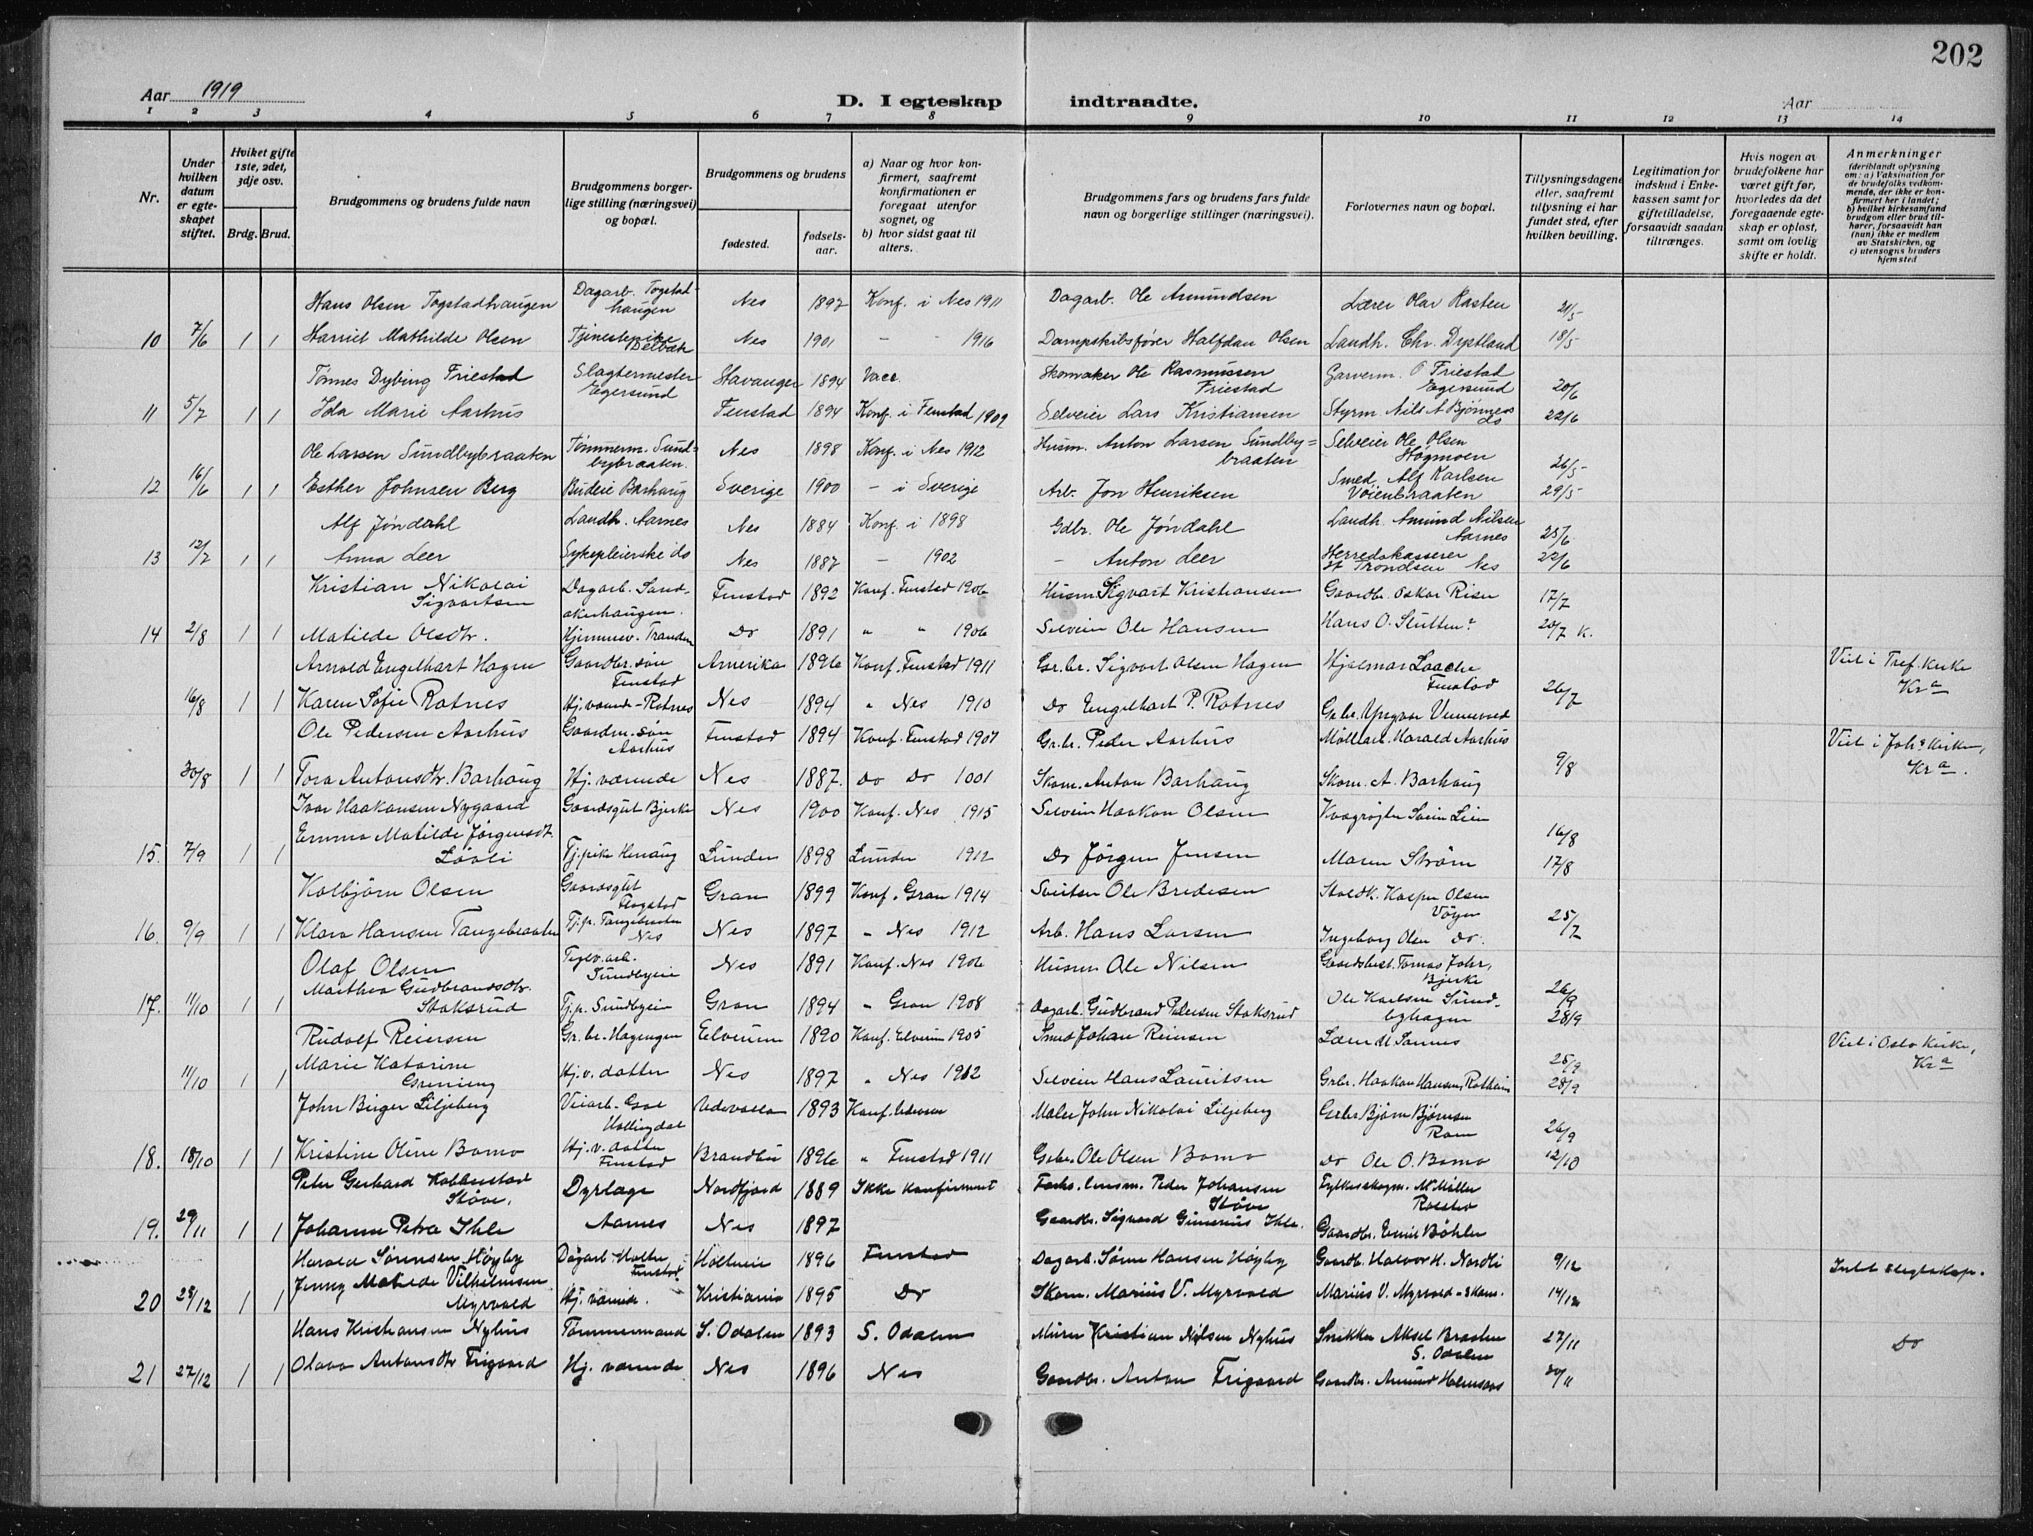 202
Aar 1919
D. I egteskap indtraadte.
Aar
1 2 3 4 5 6 7 8 9 10 11 12 13 14
Nr.
Under hvilken datum er egteskapet stiftet.
Hviket gifte 1ste, 2det, 3dje osv.
Brdg. Brud.
Brudgommens og brudens fulde navn
Brudgommens borgerlige stilling (næringsvei) og bopæl.
Brudgommens og brudens
fødested.
fødselsaar.
a) Naar og hvor konfirmert, saafremt konfirmationen er foregaat utenfor sognet, og
b) hvor sidst gaat til alters.
Brudgommens fars og brudens fars fulde navn og borgerlige stillinger (næringsvei).
Forlovernes navn og bopæl.
Tillysningsdagene eller, saafremt tillysning ei har fundet sted, efter hvilken bevilling.
Legitimation for indskud i Enkekassen samt for giftetilladelse, forsaavidt saadan tiltrænges.
Hvis nogen av brudefolkene har været gift før, hvorledes da det foregaaende egteskap er opløst, samt om lovlig skifte er holdt.
Anmerkninger
(deriblandt oplysning om: a) Vaksination for de brudefolks vedkommende, der ikke er konfirmert her i landet; b) hvilket kirkesamfund brudgom eller brud tilhører, forsaavidt han (hun) ikke er medlem av Statskirken, og c) utensogns bruders hjemsted
Hans Olsen Togstadhaugen Dagarb. Togstadhaugen Nes 1897 Konf. i Nes 1911 Dagarb. Ole Amundsen Lærer Olav Rasten 21/5
10 7/6 1 1 Harriet Mathilde Olsen Tjenestepike Nes 1901 - - 1916 Dampskibsfører Halfdan Olsen Landh. Chr. Dystland 18/5
Tønnes Dybing Friestad Slagtermester Egersund Stavanger 1894 Vacc. Skomaker Ole Rasmussen Friestad Garverm. O Friestad Egersund 20/6
11 5/7 1 1 Ida Marie Aarhus Fenstad 1894 Konf. i Fenstad 1909 Selveier Lars Kristiansen Styrm. Nils A Bjønness do 22/6
Ole Larsen Sundbybraaten Tømmerm. Sundbybraaten. Nes 1898 Konf. i Nes 1912 Husm. Anton Larsen Sundbybraaten Selveier Ole Olsen Høgmoen 26/5
12 16/6 1 1 Esther Johnsen Berg Budeie Barhaug Sverige 1900 - i Sverige Arb. Jon Henriksen Smed Alf Karlsen Vøienbraaten 29/5
Alf Jøndahl Landh. Aarnes Nes 1884 Konf. i 1898 Gdbr. Ole Jøndahl Landh. Amund Nilsen Aarnes 25/6
13 12/7 1 1 Anna Leer Sykepleierske do Nes 1887 - 1902 - Anton Leer Herredskasserer H Trondsen Nes 22/6
Kristian Nikolai Sigvartsen Dagarb. Sandakerhaugen. Fenstad 1892 Konf. Fenstad 1906 Husm. Sigvart Kristiansen Gaardbr. Oskar Risn 17/7
14 2/8 1 1 Matilde Olsdtr. Hjemmev. Tranden Do 1891 " " 1906 Selveier Ole Hansen Hans O. Slutten 20/7 K.
Arnold Engelhart Hagen Gaardbr. søn Fenstad Amerika 1896 Konf. Fenstad 1911 Gr.br. Sigvart Olsen Hagen Hjalmar Laache Fenstad Viet i Tref. Kirke Kra
16/8 1 1 Karen Sofie Rotnes Hj. værende - Rotnes Nes 1894 " Nes 1910 Do Engelhart P. Rotnes Gr.br. Yngvar Vennevold 26/7
Ole Pedersen Aarhus Gaardm. søn Aarhus Fenstad 1894 Konf. Fenstad 1907 Gr.br. Peder Aarhus Möllearb. Harald Aarhus Viet i Joh. Kirke, Kra.
30/8 1 1 Tora Antonsdtr. Barhaug Hj. værende Nes 1887. Do Do 1001 Skom. Anton Barhaug Skom. A. Barhaug 9/8
Ivar Haakonsen Nygaard Gaardsgut Bjerke Nes 1900 Konf. Nes 1915 Selveier Haakon Olsen Kvægrøgter Svein Lien 16/8
15. 7/9 1 1 Emma Matilde Jørgensdt. Løvli Tj. pike Henaug Lunder 1898 Lunder 1912 Do Jörgen Jensen Maren Strøm 17/8
Kolbjørn Olsen Gaardsgut Gran 1899 Konf. Gran 1914 Sveitser Ole Bredesen Staldk. Kasper Olsen Vöyen
16. 9/9 1 1 Klara Hansen Tangebraaten Tj.p. Tangebraaten Nes Nes 1897 " Nes 1912 Arb. Hans Larsen Ingeborg Olsen Do. 25/7
Olaf Olsen Teglv.arb. Sundbyeie Nes 1891 Konf. Nes 1906 Husm. Ole Nilsen Gaardsbest. Tomas Johr, Bjerke 26/9
17. 11/10 1 1 Marthea Gudbrandsdtr. Stoksrud Tj.p. Sundbyeie Gran 1894 " Gran 1908 Dagarb. Gudbrand Pedersen Stoksrud Ole Karlsen Sundbyhagen 28/9
Rudolf Reiersen Gr.br. Hagengen Elverum 1890 Konf. Elverum 1905 Smed Johan Reiersen Lærer M Sannes 25/9 Viet i Oslo Kirke, Kra
11/10 1 1 Marie Katarine Grenieng Hj.v. datter Nes 1897 " Nes 1912 Selveier Hans Lauritsen Gr.br. Haakon Hansen Rotheim 28/9
John Birger Liljeberg Veiarb. Gol Hallingdal Udevalla 1893 Konf. Maler John Nikolai Liljeberg Gr.br. Bjørn Bjørnsen Rom 26/9
18. 18/10 1 1 Kristine Oline Bamo Hj.v. datter Fenstad Brandbu 1896 " Fenstad 1911 Gr.br. Ole Olsen Bamo Do Ole O. Bamo 12/10
Peter Gerhard Kobbenstad Støve, Dyrlæge Nordfjord 1889 Ikke konfirmert Forhv. lensm. Peder Johansen Støve Fylkesskogm. M Müller
19. 29/11 1 1 Johanne Petra Ihle Aarnes Nes 1897 Gaardbr. Sigvard Gunerius Ihle. Gaardbr. Emil Böhler
Harald Sørensen Høgby Dagarb. Holter Fenstad 1896 Fenstad Dagarb. Søren Hansen Høgby Gaardb. Halvor H. Nordli 9/12 Intet slegtskap.
20 28/12 1 1 Jenny Matilde Vilhelmsen Myrvold Hj. værende. Kristiania 1895 Do Skom. Marius V. Myrvold Marius V. Myrvold - Skom. 14/12
Hans Kristiansen Nyhus Tømmermand S. Odalen 1893 S. Odalen Murer Kristian Nilsen Nyhus Snikker Aksel Braaten S. Odalen 27/11 Do
21 27/12 1 1 Olava Antonsdtr Frigaard Hj. værende Nes 1896 Nes Gaardbr. Anton Frigaard Gaardbr. Amund Holmsaas 30/11